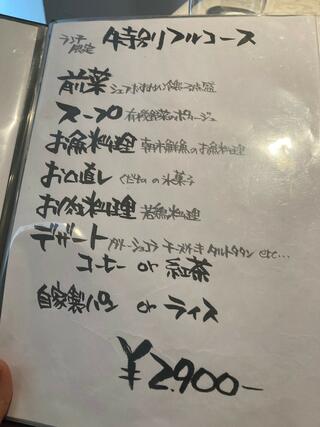 ランチ限定 特別フルコース
前菜 シェフおすすめ
スープ 有機野菜のポタージュ
お魚料理 朝市鮮魚のお魚料理
お口直し くだものの氷菓子
お肉料理 若鶏料理
デザート ガトーショコラ チーズケーキ タルトタタン etc...
コーヒー or 紅茶
自家製パン or ライス
¥2,900-